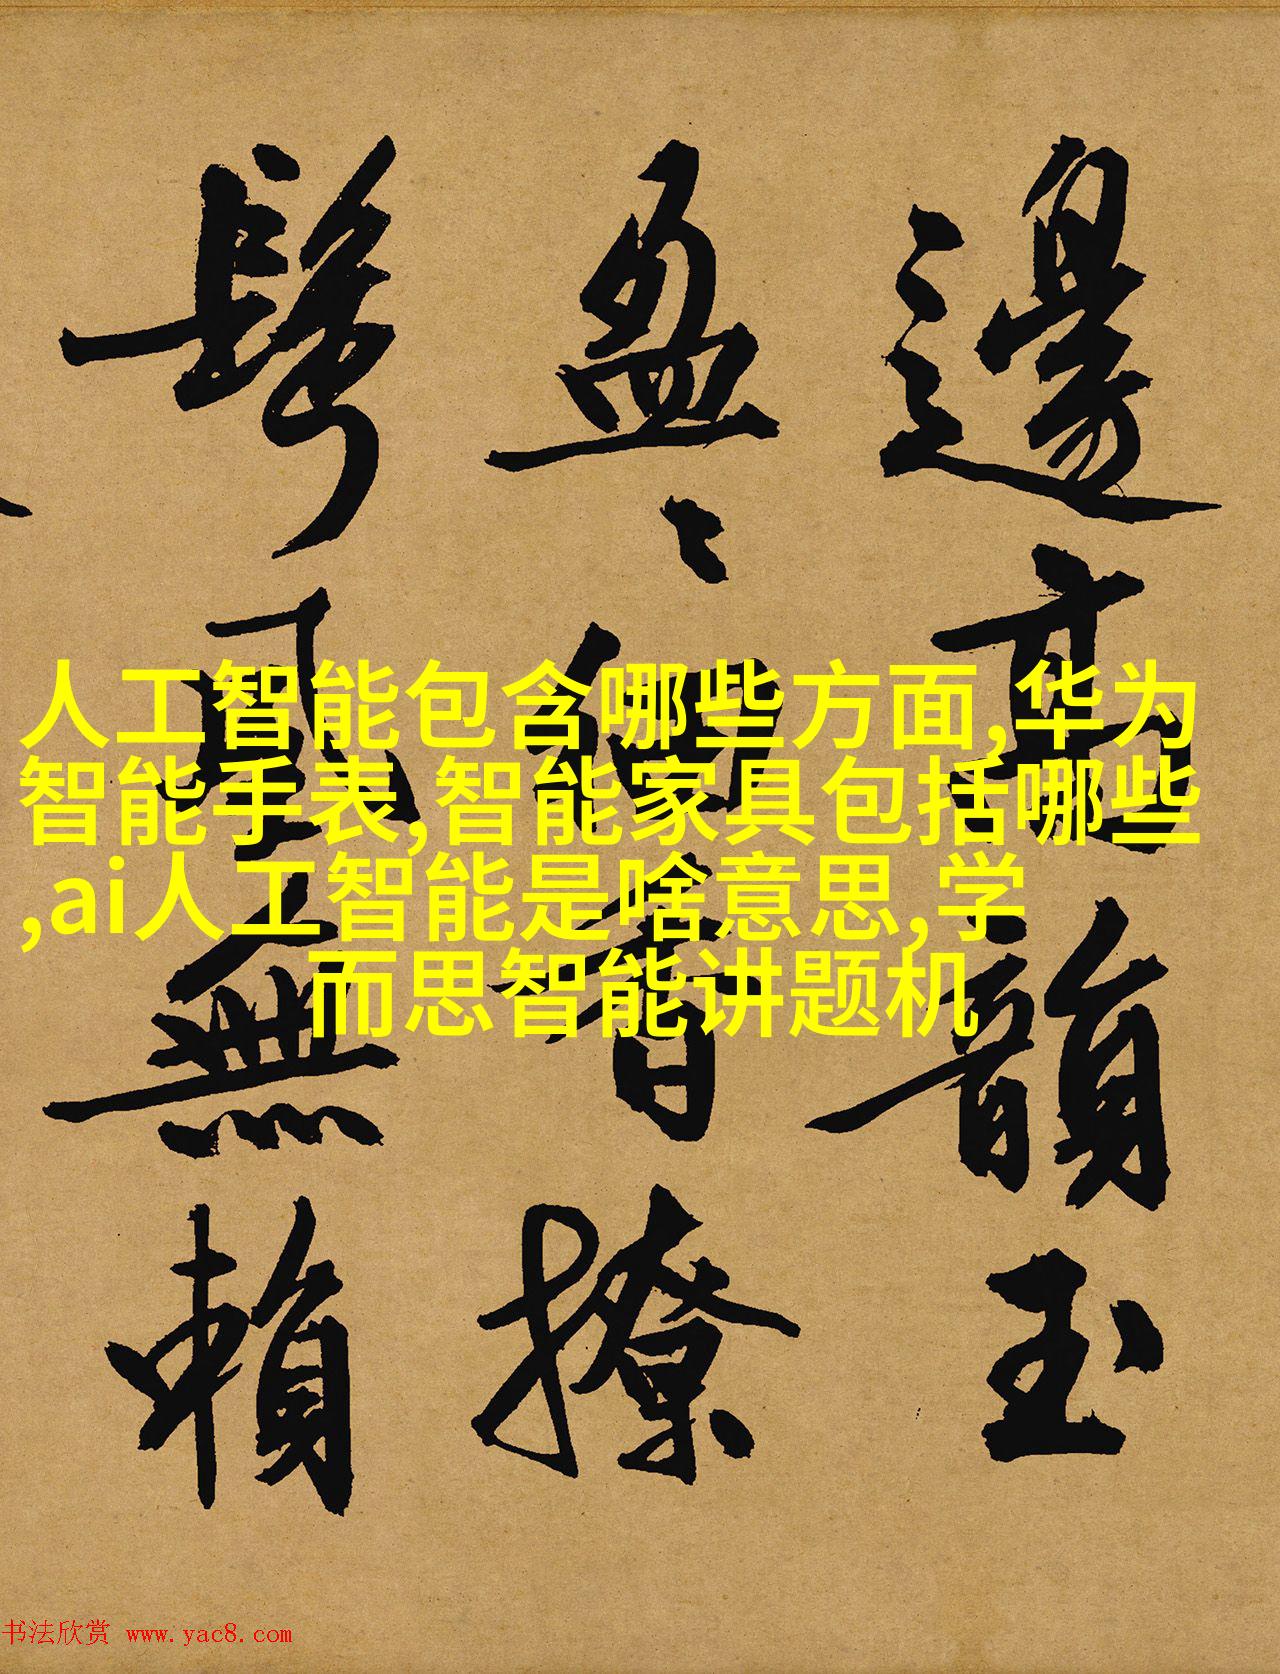 邊高韻玉
盈々細香撩
鬢風無賴
人工智能包含哪些方面,华为
智能手表,智能家具包括哪些
,ai人工智能是啥意思,学
而思智能讲题机
书法欣赏 www.yac8.com